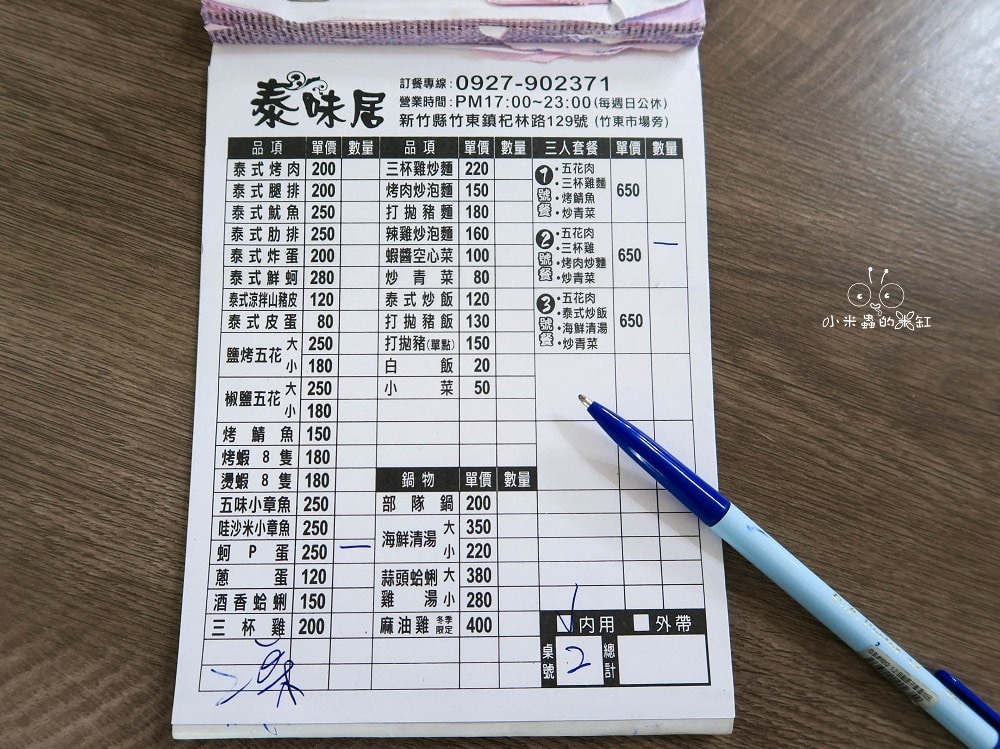 泰味居
訂餐專線：0927-902371
營業時間：PM17:00~23:00(每週日公休)
新竹縣竹東鎮杞林路129號 (竹東市場旁)
品項 單價 數量 品項 單價 數量 三人套餐 單價 數量
泰式烤肉 200
泰式腿排 200
泰式魷魚 250
泰式肋排 250
泰式炸蛋 200
泰式鮮蚵 280
泰式涼拌山豬皮 120
泰式皮蛋 80
鹽烤五花 大 250
小 180
椒鹽五花 大 250
小 180
烤鯖魚 150
烤蝦8隻 180
燙蝦8隻 180
五味小章魚 250
哇沙米小章魚 250
蚵P蛋 250 一
蔥蛋 120
酒香蛤蜊 150
三杯雞 200
三杯雞炒麵 220
烤肉炒泡麵 150
打拋豬麵 180
辣雞炒泡麵 160
蝦醬空心菜 100
炒青菜 80
泰式炒飯 120
打拋豬飯 130
打拋豬(單點) 150
白飯 20
小菜 50
鍋物 單價 數量
部隊鍋 200
海鮮清湯 大 350
小 220
蒜頭蛤蜊 大 380
雞湯 小 280
麻油雞 冬季限定 400
1號餐 650
·五花肉
·三杯雞麵
·烤鯖魚
·炒青菜
2號餐 650 一
·五花肉
·三杯雞
·烤肉炒麵
·炒青菜
3號餐 650
·五花肉
·泰式炒飯
·海鮮清湯
·炒青菜
內用 外帶
桌號 2 總計
小米蟲的米缸